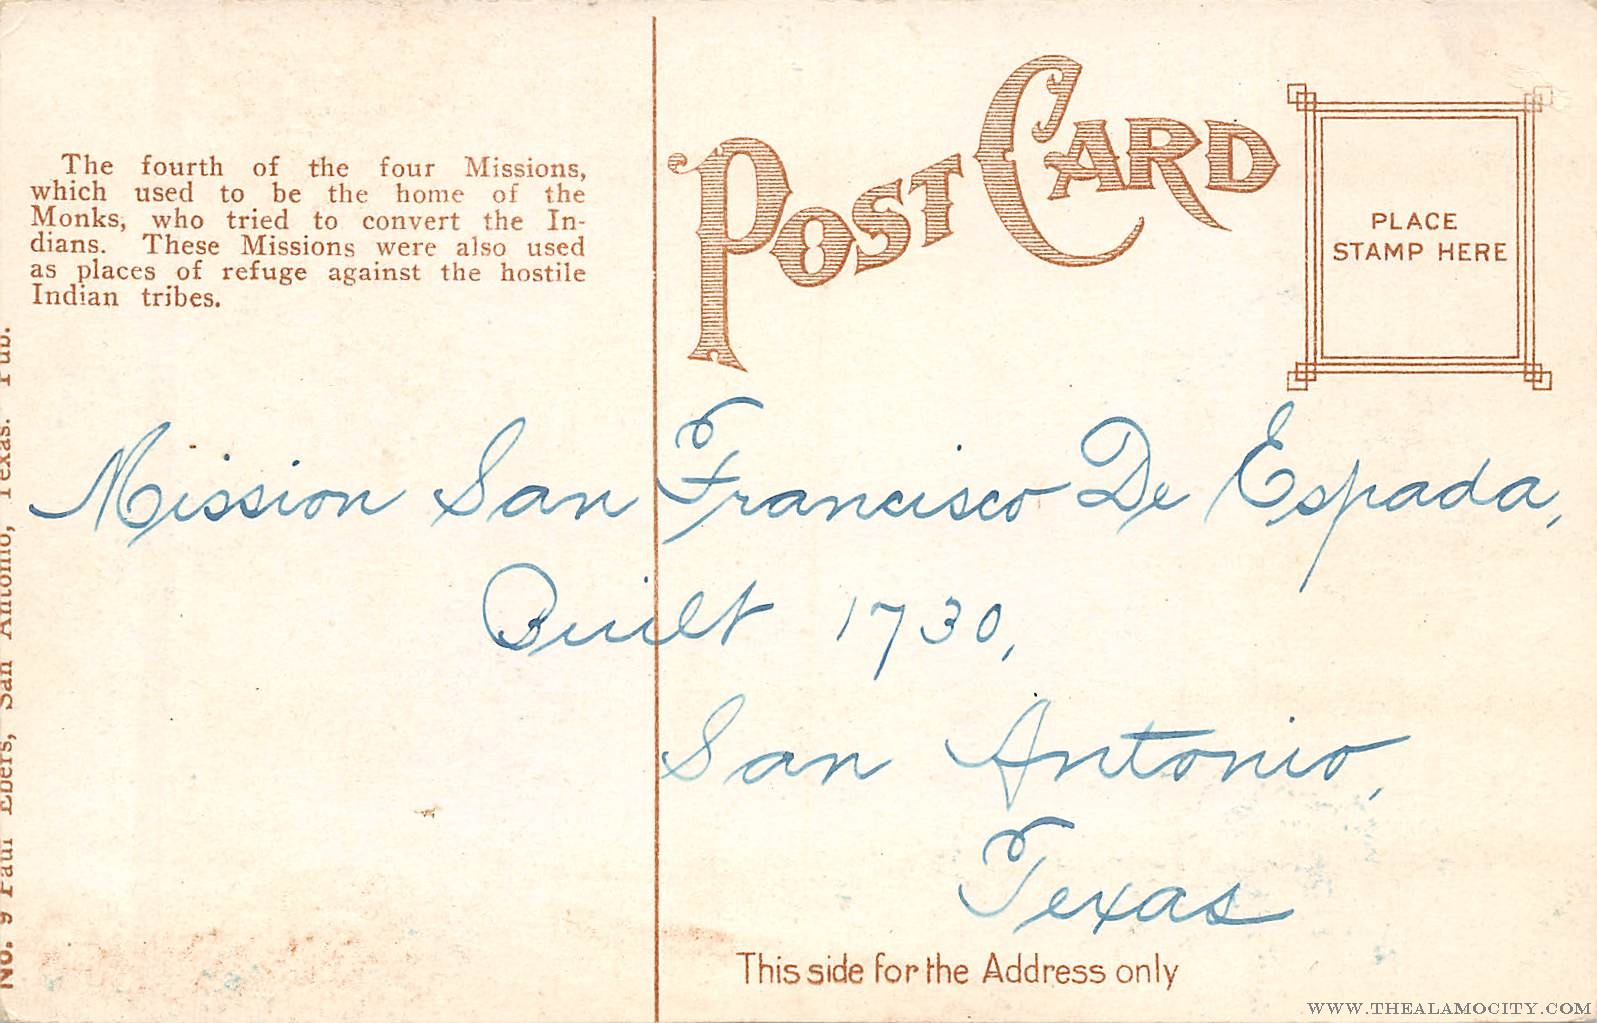 The fourth of the four Missions,
which used to be the home of the
Monks, who tried to convert the In-
dians. These Missions were also used
as places of refuge against the hostile
Indian tribes.
No. 9 Paul Ebers, San Antonio, Texas. Pub.
POST CARD
PLACE
STAMP HERE
Mission San Francisco De Espada,
Built 1730,
San Antonio,
Texas
This side for the Address only
WWW.THEALAMOCITY.COM